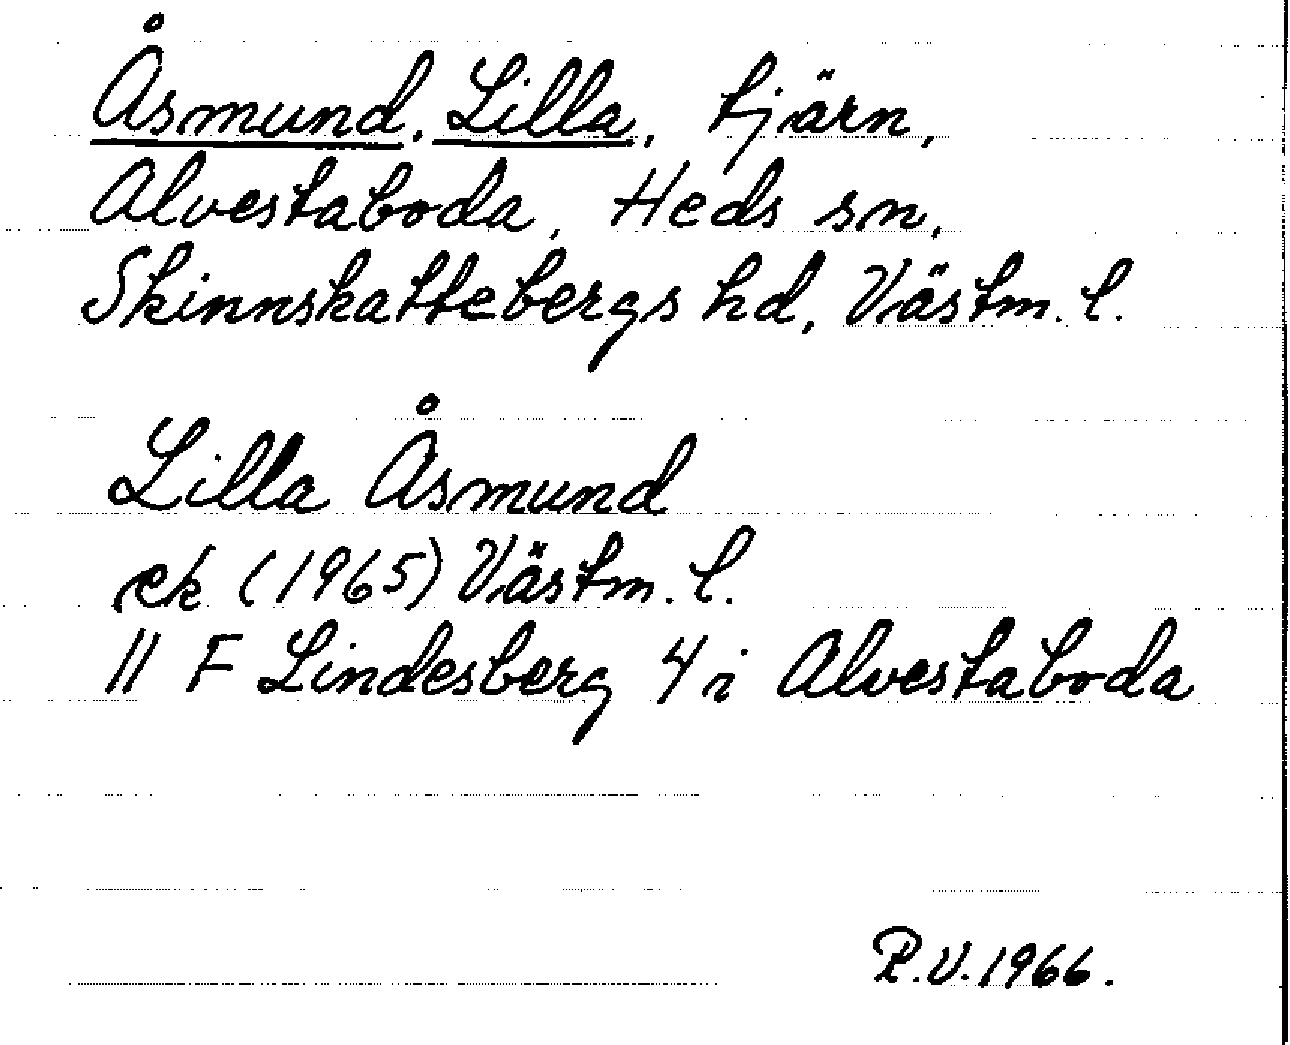 Åsmund, Lilla, tjärn,
Alvestaboda, Heds sn,
Skinnskattebergs hd, Västm. l.
Lilla Åsmund
ek (1965) Västm. l.
11 F Lindesberg 4 i Alvestaboda
R.V. 1966.